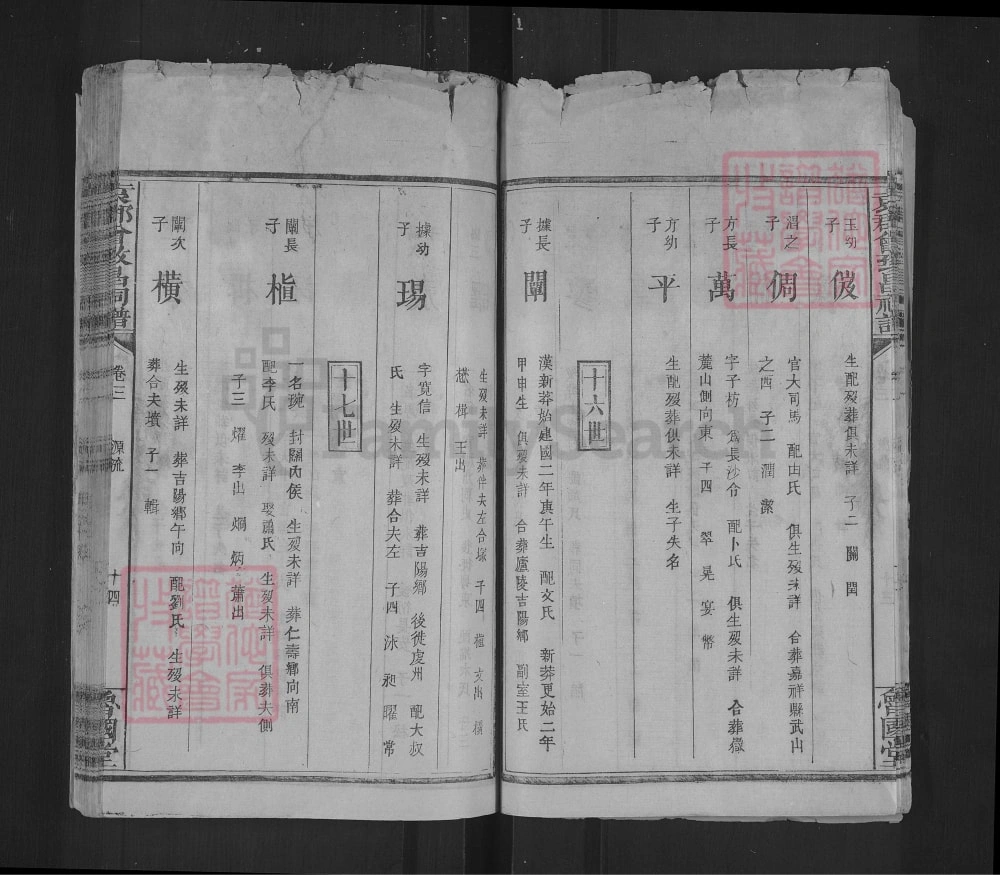 玉幼子 儉
生配歿葬俱未詳 子二 關 閏
渭之子 倜
官大司馬 配由氏 俱生歿未詳 合葬嘉祥縣武山
之西 子二 潤 潔
方長子 萬
字子枋 爲長沙令 配卜氏 俱生歿未詳 合葬嶽
麓山側向東 子四 翠 晃 宴 幣
方幼子 平
生配歿葬俱未詳 生子失名
十六世
據長子 闡
漢新莽始建國二年庚午生 配文氏 新莽更始二年
甲申生 俱歿未詳 合葬廬陵吉陽鄉 副室王氏
生歿未詳 葬伴夫左合塚 子四 楦 文出 橫
楙 楫 王出
據幼子 瑒
字寬信 生歿未詳 葬吉陽鄉 後徙虔州 配大叔
氏 生歿未詳 葬合夫左 子四 泳 昶 曜 常
十七世
闡長子 楦
一名琬 封關內侯 生歿未詳 葬仁壽鄉向南
配李氏 歿未詳 娶蕭氏 生歿未詳 俱葬夫側
子三 燿 李出 烱 炳 蕭出
闡次子 橫
生歿未詳 葬吉陽鄉午向 配劉氏 生歿未詳
葬合夫墳 子一 輯
卷三 源流 十四 魯國堂
FamilySearch